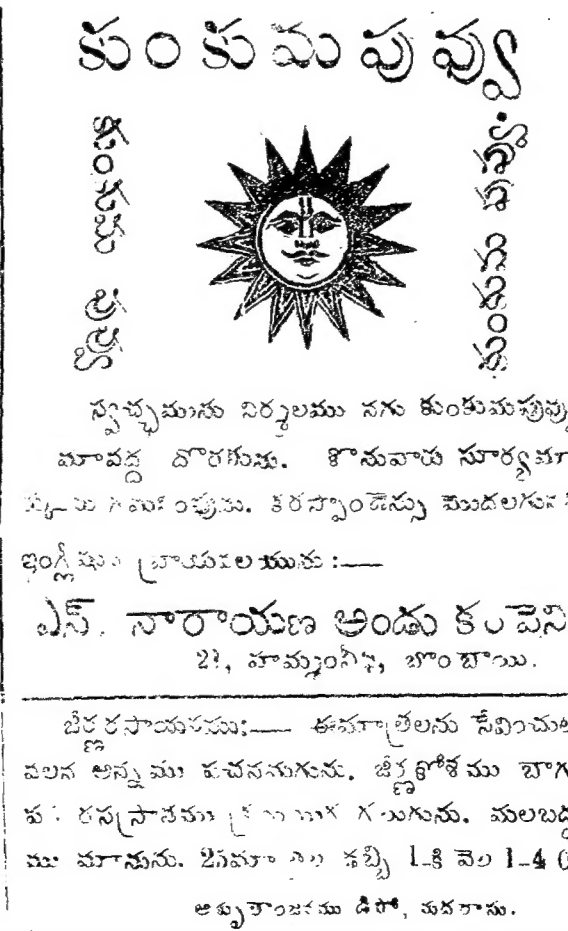 కుంకుమపువ్వు
కుంకుమ పువ్వు
కుంకుమ పువ్వు.
స్వచ్ఛమును నిర్మలము నగు కుంకుమపువ్వు
మావద్ద దొరకును. కొనువారు సూర్యమా
కరస్పాండెన్సు మొదలగు
ఇంగ్లీషున వ్రాయవలయును :—
ఎస్. నారాయణ అండు కంపెని
హమ్మంవీధి, బొంబాయి.
జీర్ణ రసాయనము:— ఈమాత్రలను సేవించుట
వలన అన్నము పచనమగును. జీర్ణకోశము బాగ
కలుగును. మలబద్ధ
ము మానును. డబ్బి 1-కి వెల 1-4
అమృతాంజనము డిపో, మదరాసు.